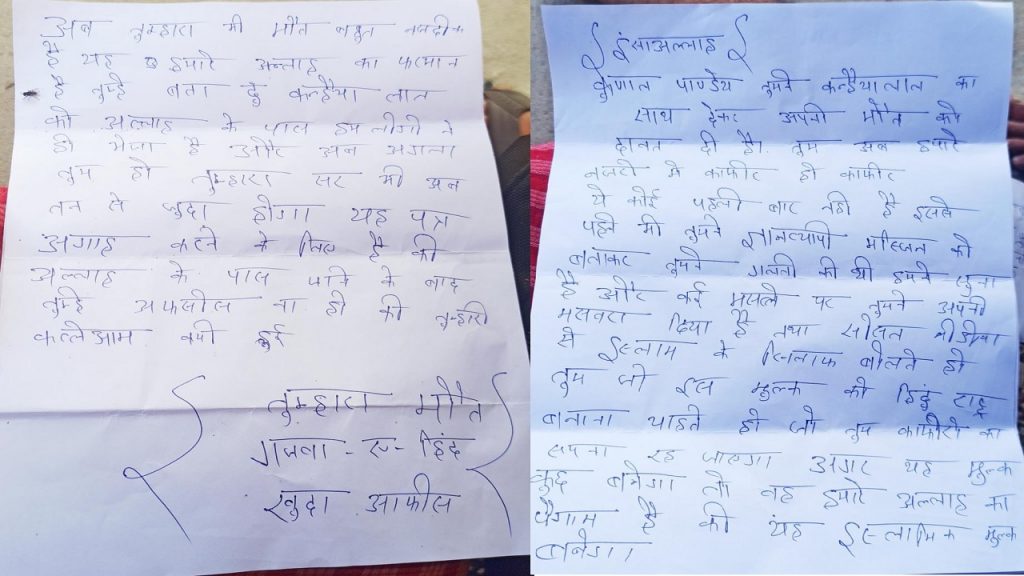 अब तुम्हारा भी मौत बहुत नजदीक
है यह हमारे अल्लाह का फरमान
है तुम्हे बता दु कन्हैया लाल
को अल्लाह के पास हम लोगो ने
ही भेजा है और अब अगला
तुम हो तुम्हारा सर भी अब
तन से जुदा होगा यह पत्र
अगाह करने के लिए है की
अल्लाह के पास जाने के बाद
तुम्हे अफसोस ना हो की तुम्हारी
कत्लेआम क्यो हुई
तुम्हारा मौत
गजवा-ए-हिंद
खुदा आफीस
इंसाअल्लाह
कुणाल पाण्डेय तुमने कन्हैयालाल का
साथ देकर अपनी मौत को
दावत दी है। तुम अब हमारे
नजरो मे काफीर हो काफीर
ये कोई पहली बार नही है इससे
पहले भी तुमने ज्ञानव्यापी मस्जिद को
बताकर तुमने गलती की थी हमने सुना
है और कई मसले पर तुमने अपनी
मसवरा दिया है तथा सोसल मीडीया
से इस्लाम के खिलाफ बोलते हो
तुम जो इस मुल्क को हिंदु राष्ट्र
बनाना चाहते हो जो तुम काफीरो का
सपना रह जाएगा अगर यह मुल्क
कुछ बनेगा तो वह हमारे अल्लाह का
पैगाम है की यह इस्लामिक मुल्क
बनेगा।